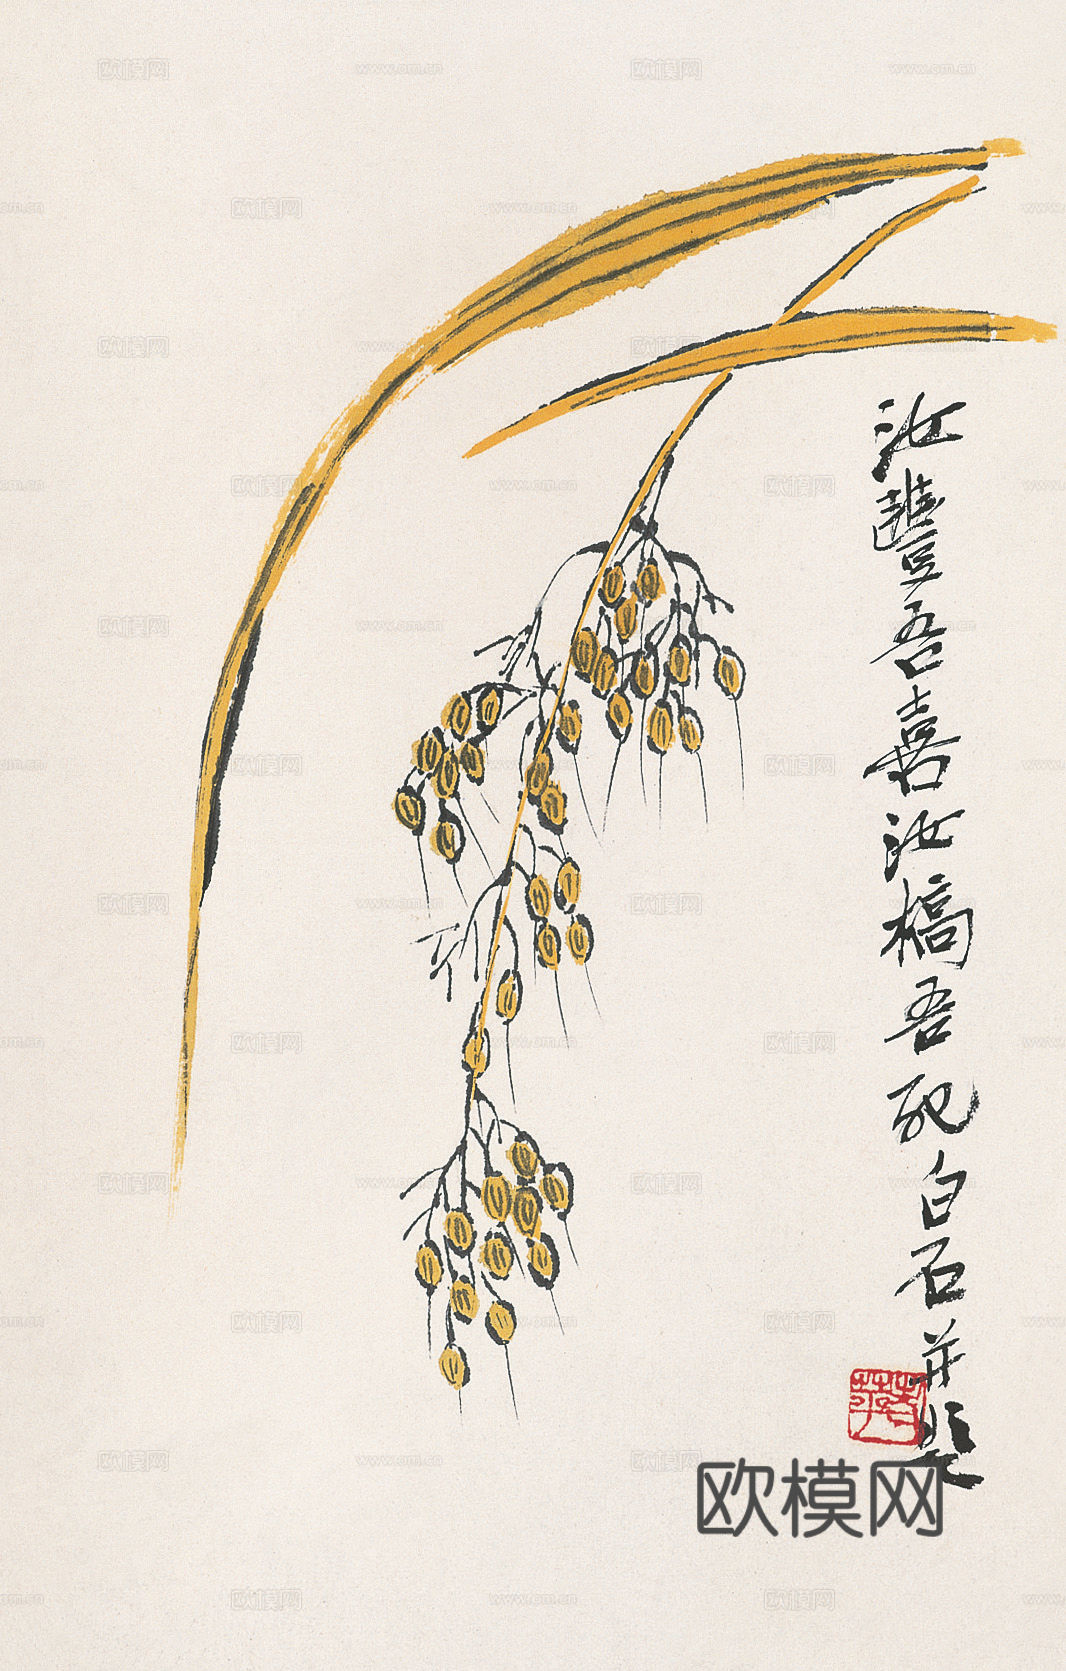 汝豐吾喜汝槁吾死白石并題
欧模网
欧模网
www.om.cn